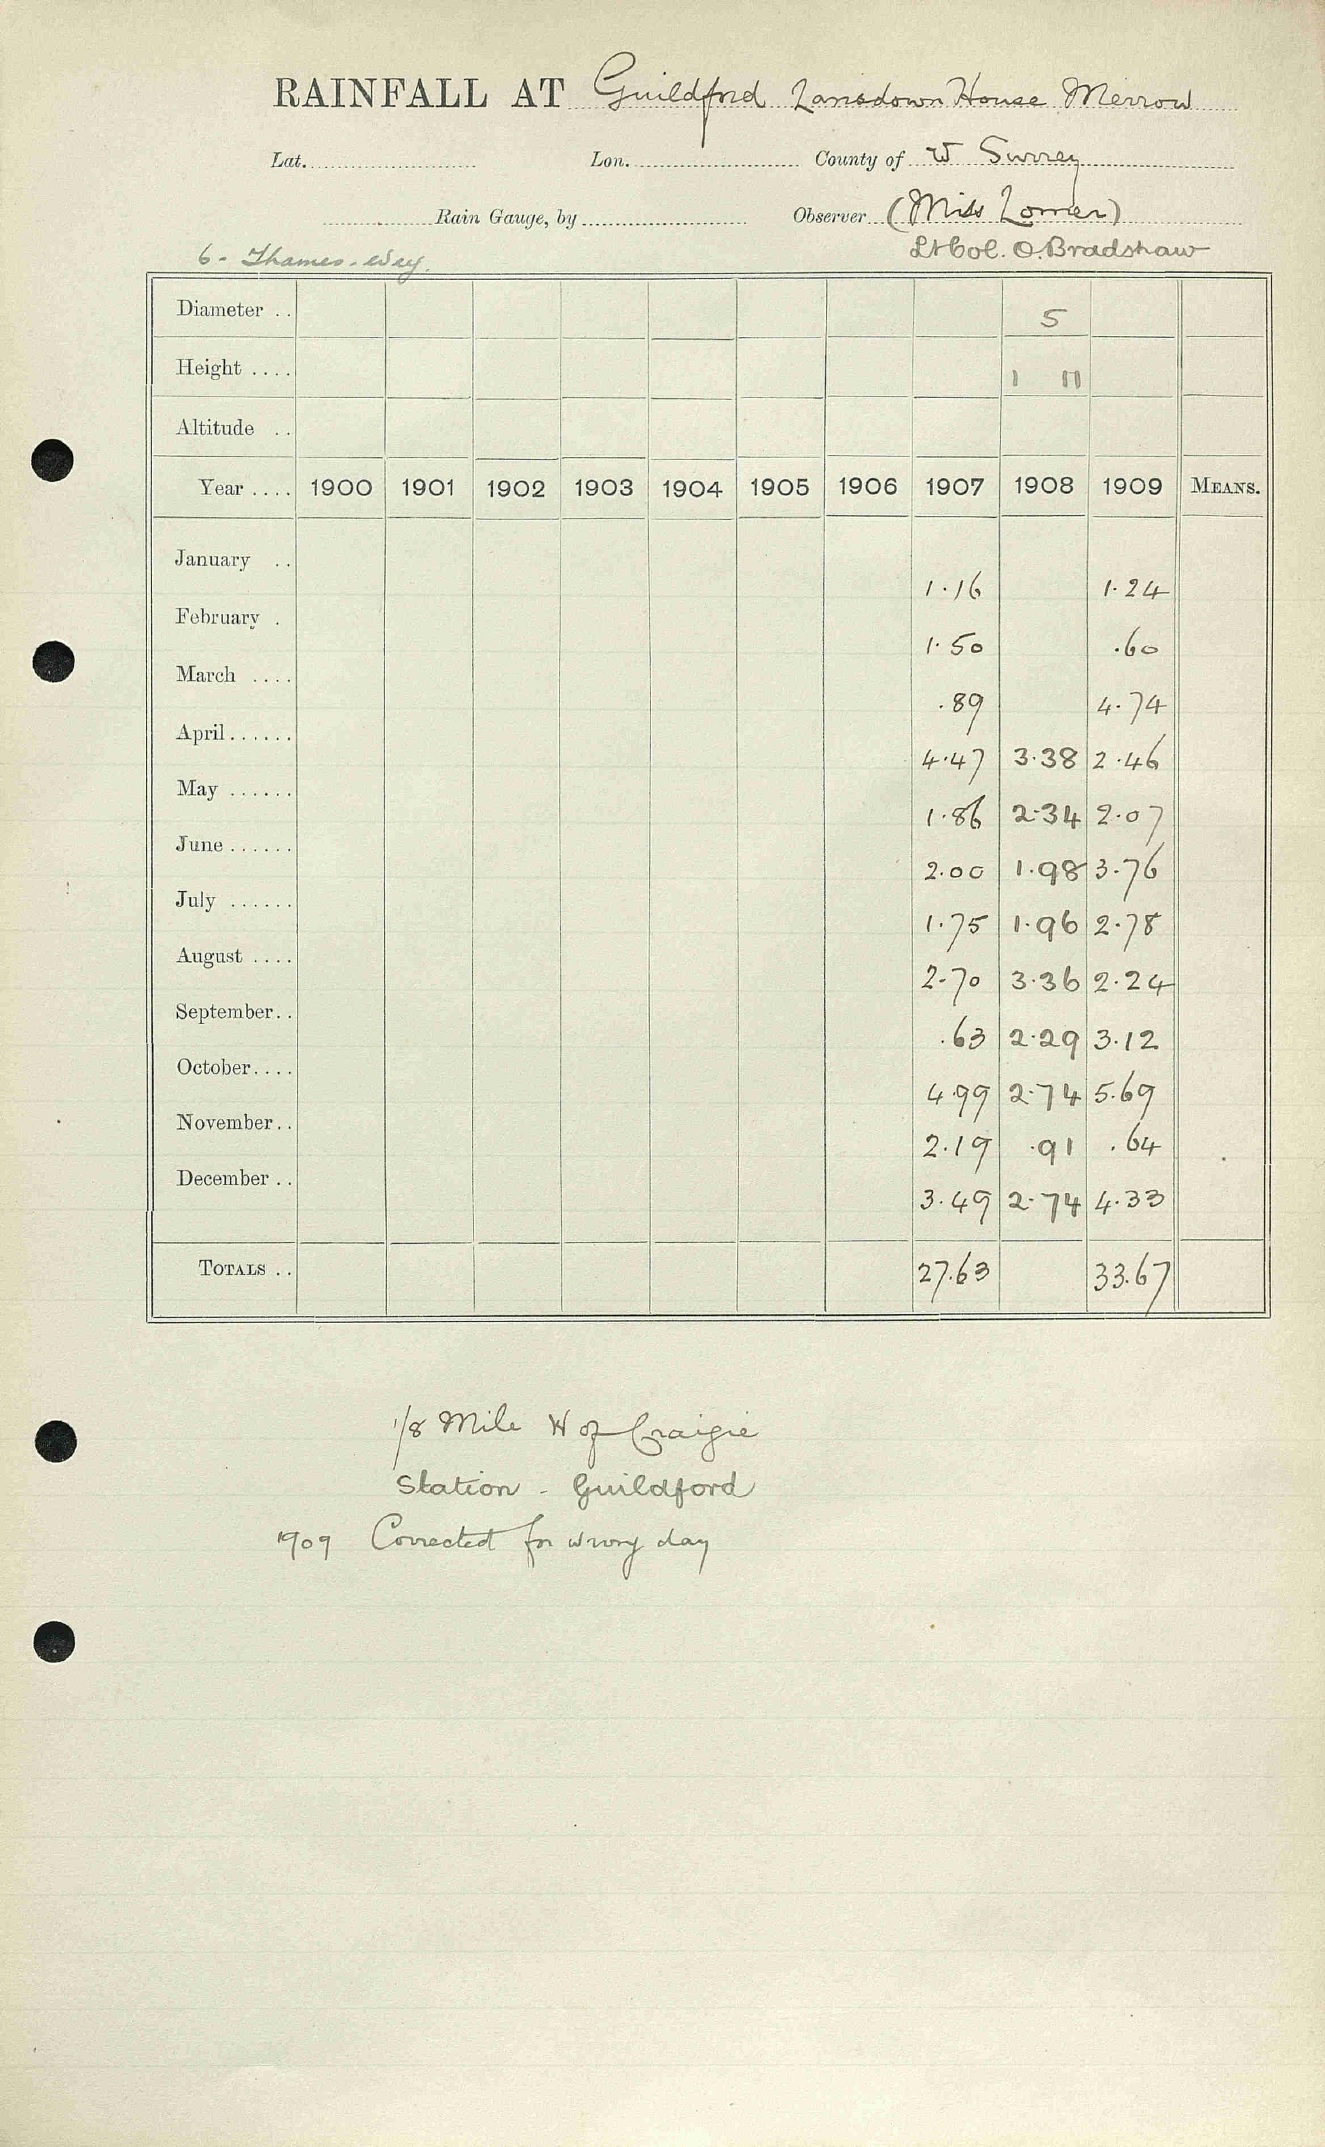 RAINFALL AT Guildford Lansdown House Merrow
Lat. Lon. County of W Surrey
Rain Gauge, by Observer (Miss Lomer)
6 - Thames - Wey. Lt Col. O. Bradshaw
Diameter .. 5
Height .... 1 11
Altitude ..
Year .... 1900 1901 1902 1903 1904 1905 1906 1907 1908 1909 MEANS.
January .. 1.16 1.24
February . 1.50 .60
March .... .89 4.74
April...... 4.47 3.38 2.46
May ...... 1.86 2.34 2.07
June ...... 2.00 1.98 3.76
July ...... 1.75 1.96 2.78
August .... 2.70 3.36 2.24
September.. .63 2.29 3.12
October.... 4.99 2.74 5.69
November.. 2.19 .91 .64
December .. 3.49 2.74 4.33
TOTALS .. 27.63 33.67
1/8 Mile W of Craigie
Station - Guildford
1909 Corrected for wrong day